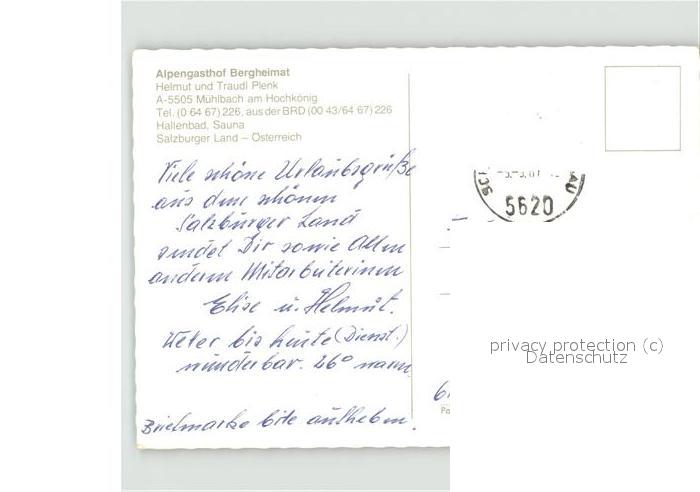 Alpengasthof Bergheimat
Helmut und Traudl Plenk
A-5505 Mühlbach am Hochkönig
Tel. (0 64 67) 226, aus der BRD (00 43/64 67) 226
Hallenbad, Sauna
Salzburger Land – Österreich
Viele schöne Urlaubsgrüße
aus dem schönen
Salzburger Land
sendet Dir sowie Allen
anderen Mitarbeiterinnen
Elise u. Helmut.
Wetter bis heute (Dienst.)
wunderbar. 26° warm.
Briefmarke bite aufheben.
5620
privacy protection (c)
Datenschutz